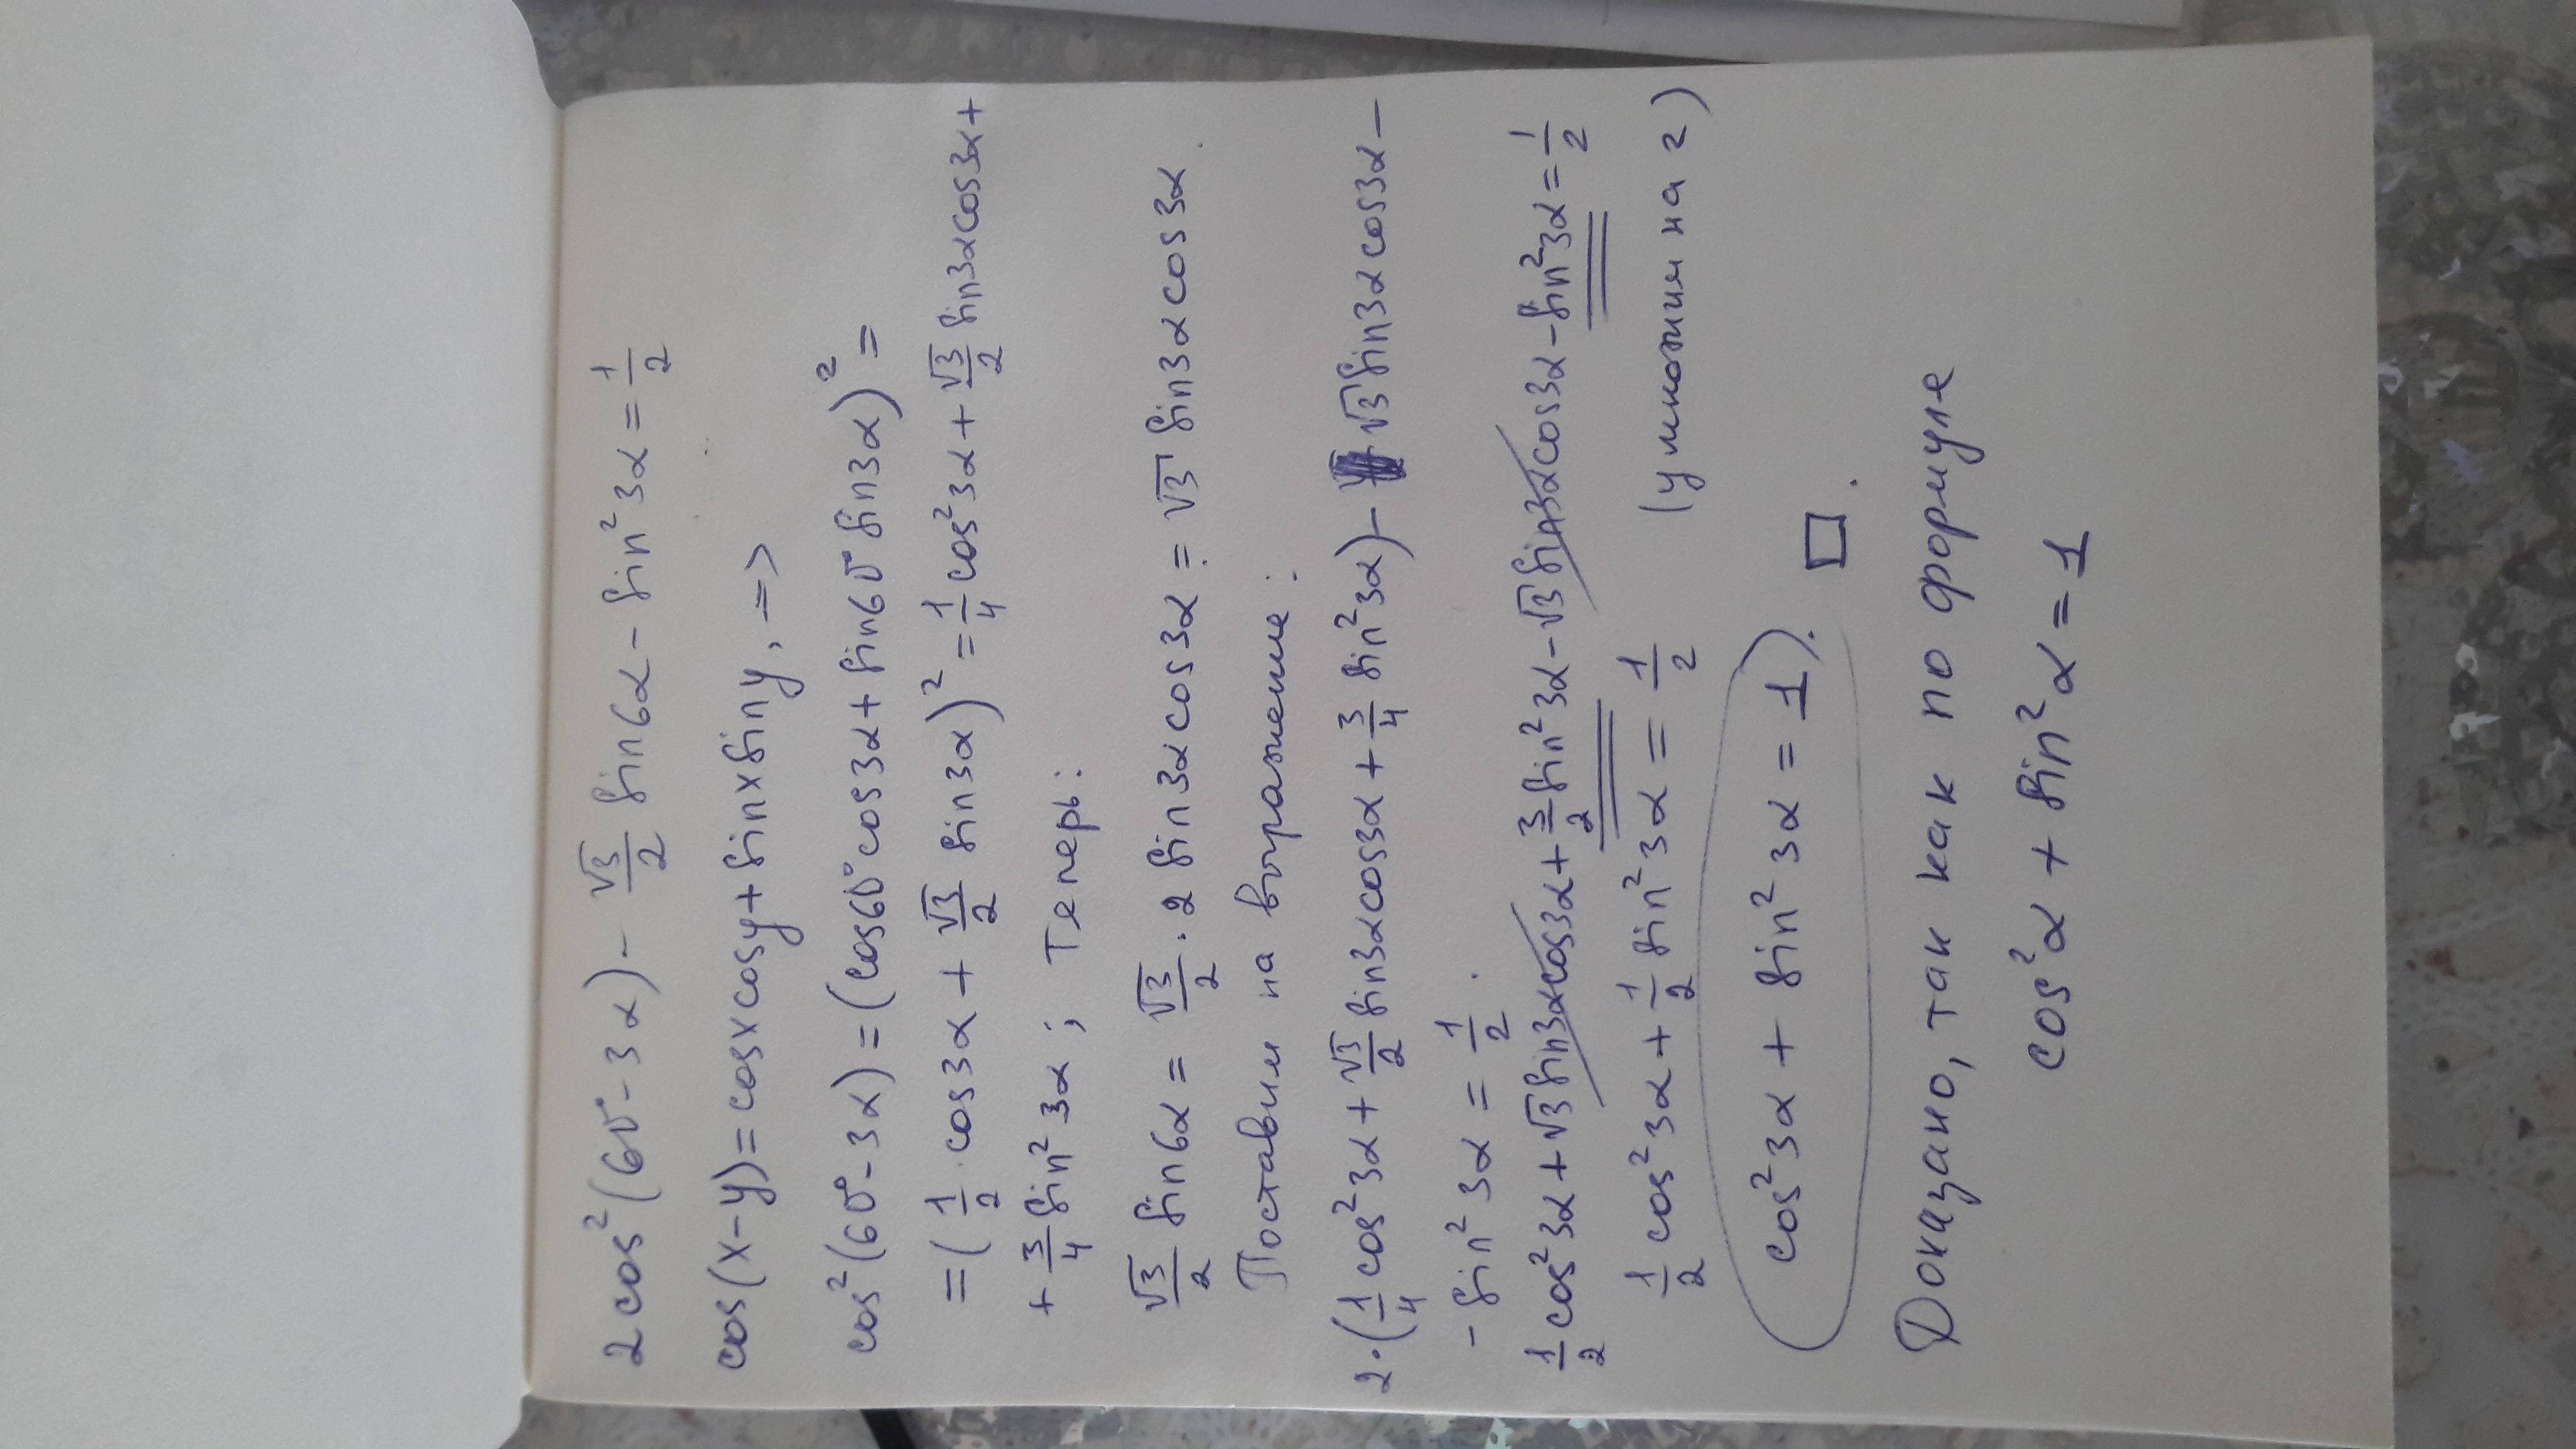 2cos²(60°-3α)-√3/2 sin6α-sin²3α=1/2
cos(x-y)=cosxcosy+sinxsiny, =>
cos²(60°-3α)=(cos60°cos3α+sin60°sin3α)²=
=(1/2·cos3α+√3/2 sin3α)²=1/4cos²3α+√3/2 sin3αcos3α+
+3/4sin²3α; Теперь:
√3/2 sin6α=√3/2·2sin3αcos3α=√3 sin3αcos3α.
Поставим на выражение:
2·(1/4cos²3α+√3/2sin3αcos3α+3/4sin²3α)-√3sin3αcos3α-
-sin²3α=1/2.
1/2cos²3α+√3sin3αcos3α+3/2sin²3α-√3sin3αcos3α-sin²3α=1/2
1/2cos²3α+1/2sin²3α=1/2 (умножим на 2)
cos²3α+sin²3α=1). □.
Доказано, так как по формуле
cos²α+sin²α=1